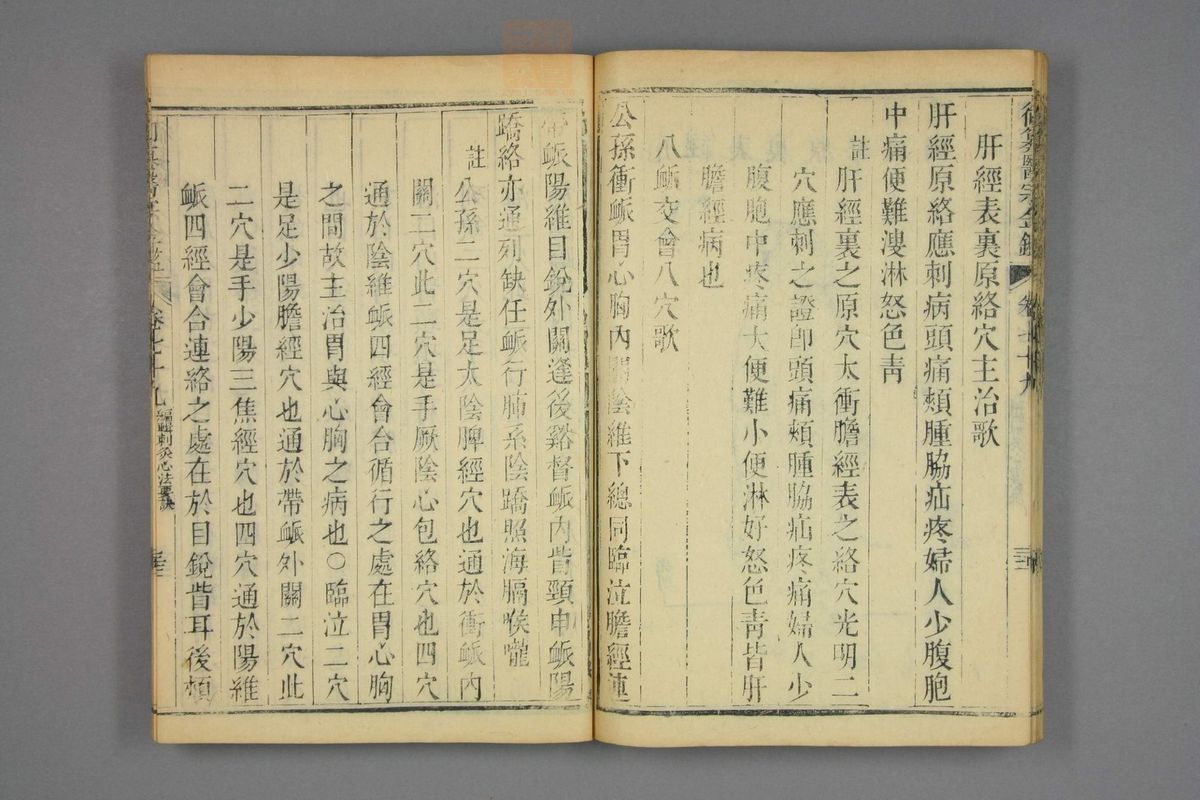 御纂醫宗金鑑 卷七十九
肝經表裏原絡穴主治歌
肝經原絡應刺病頭痛頰腫脇疝疼婦人少腹胞
中痛便難溲淋怒色青
註 肝經裏之原穴太衝膽經表之絡穴光明二
穴應刺之證即頭痛頰腫脇疝疼痛婦人少
腹胞中疼痛大便難小便淋好怒色青皆肝
膽經病也
八䘑交會八穴歌
公孫衝䘑胃心胸內關陰維下總同臨泣膽經連
帶䘑陽維目銳外關逢後谿督䘑內眥頸申䘑陽
蹻絡亦通列缺任䘑行肺系陰蹻照海膈喉嚨
註 公孫二穴是足太陰脾經穴也通於衝䘑內
關二穴此二穴是手厥陰心包絡穴也四穴
通於陰維䘑四經會合循行之處在胃心胸
之間故主治胃與心胸之病也○臨泣二穴
是足少陽膽經穴也通於帶䘑外關二穴此
二穴是手少陽三焦經穴也四穴通於陽維
䘑四經會合連絡之處在於目銳眥耳後頰
卷七十九 編輯刺灸心法要訣